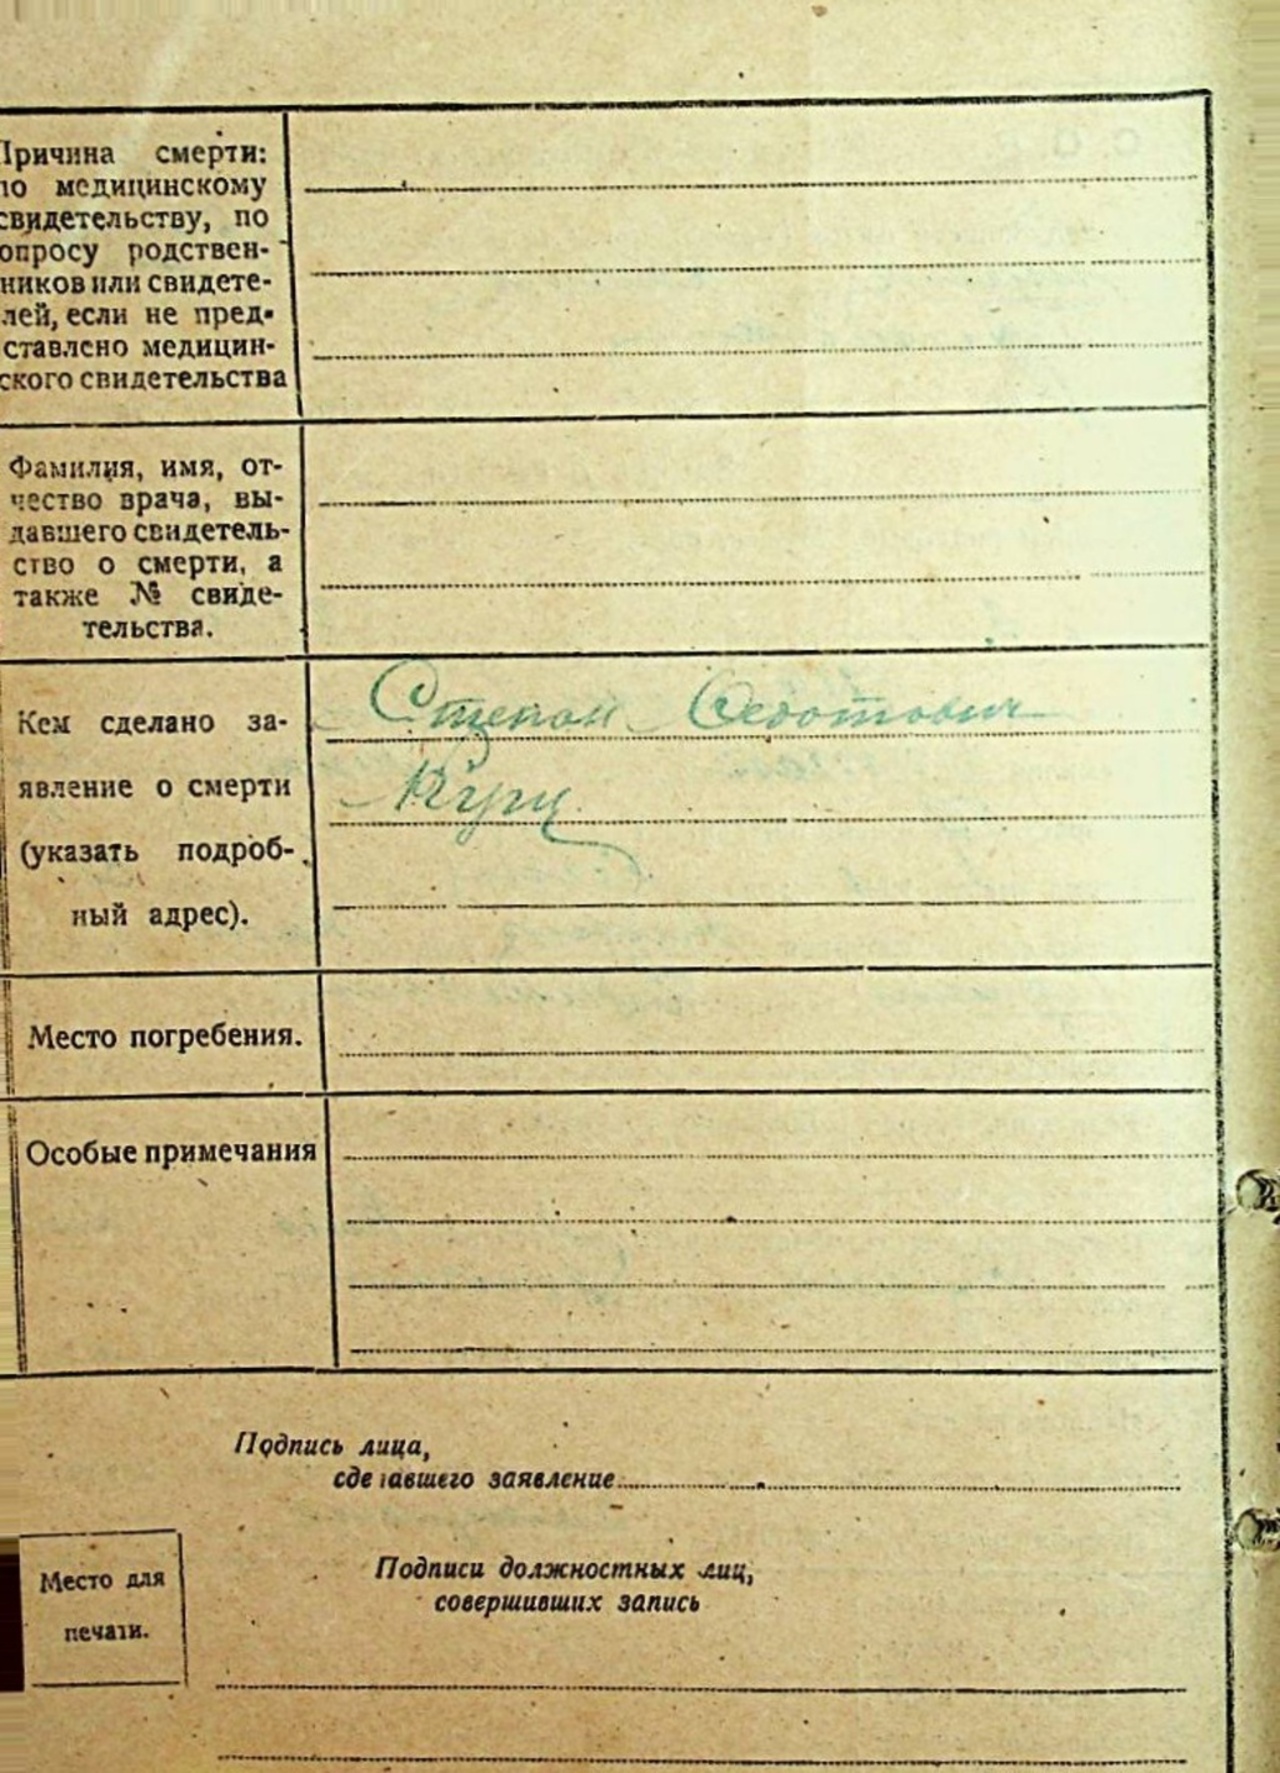 Причина смерти:
по медицинскому
свидетельству, по
опросу родствен-
ников или свидете-
лей, если не пред-
ставлено медицин-
ского свидетельства
Фамилия, имя, от-
чество врача, вы-
давшего свидетель-
ство о смерти, а
также № свиде-
тельства.
Кем сделано за-
явление о смерти
(указать подроб-
ный адрес).
Степан Федотович
Куц
Место погребения.
Особые примечания
Подпись лица,
сделавшего заявление
Подписи должностных лиц,
совершивших запись
Место для
печати.